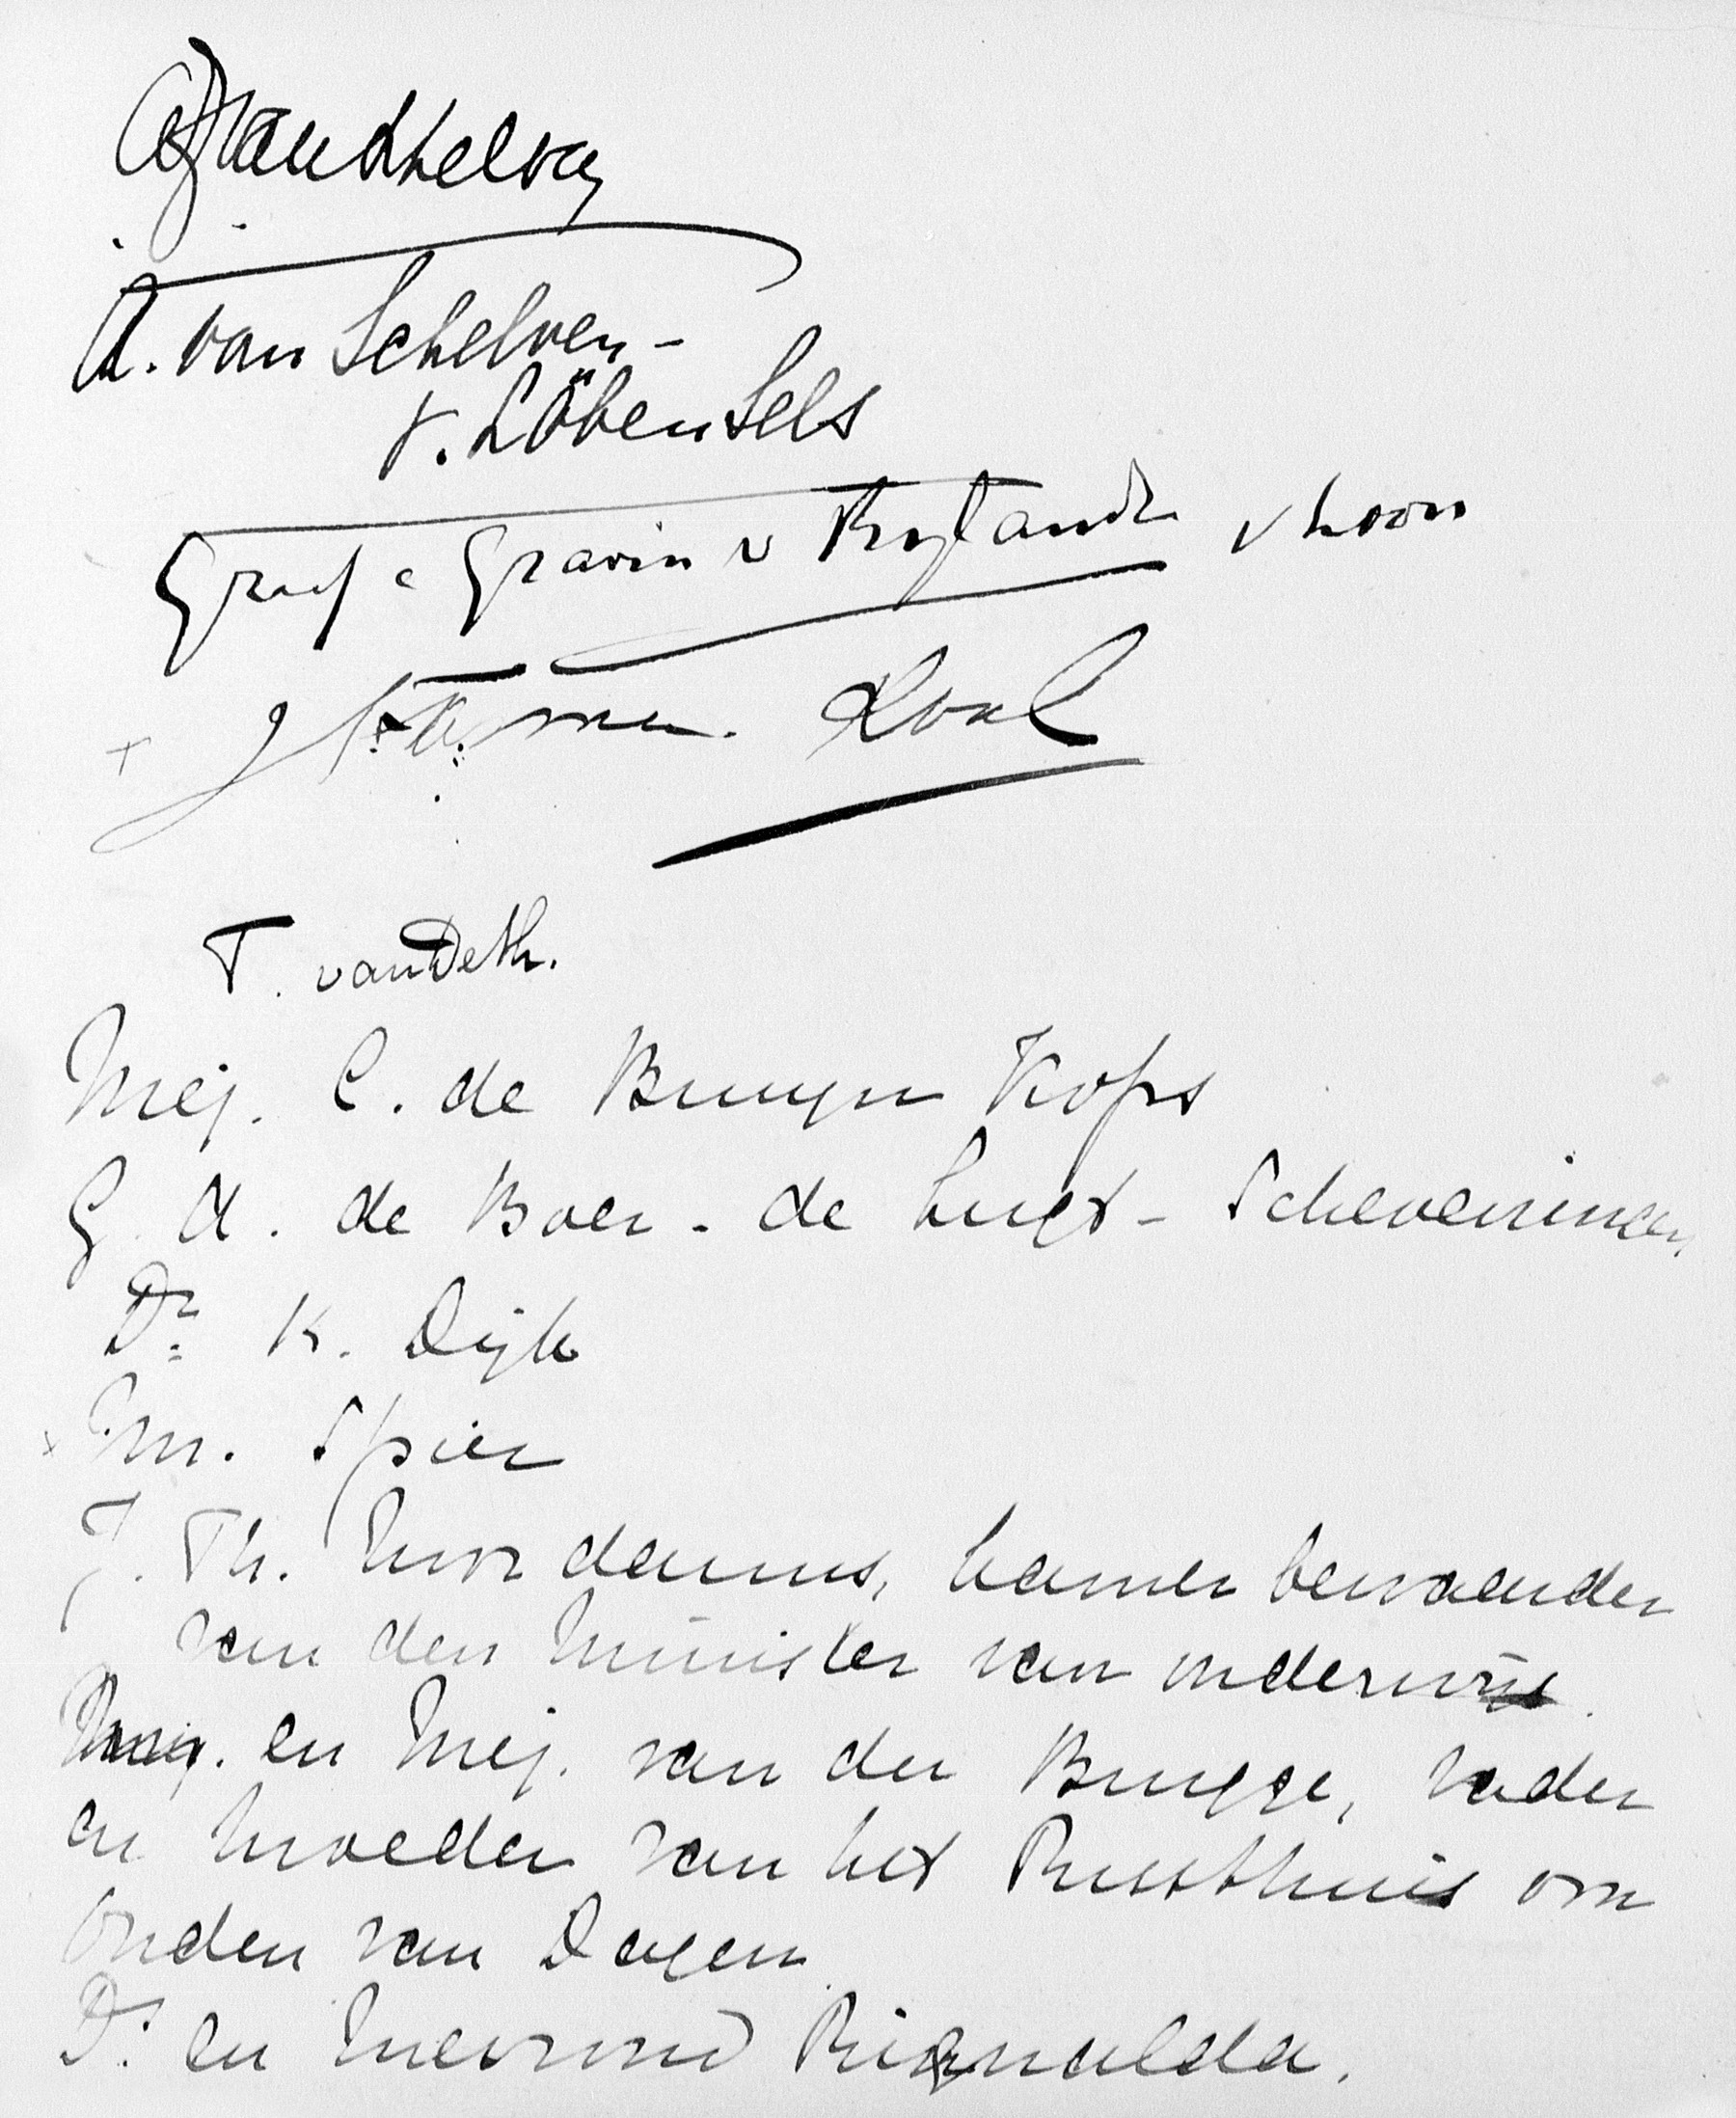 A. van Schelven
A. van Schelven -
v. Löben Sels
Graf e Gravin v Rylandt v Loon
T. van Deth.
Mej. C. de Bruyn Kops
G. A. de Boer - de Lugt - Scheveningen
Dr. K. Dijk
M. Spier
J. Th. Mordamus, kamerbewaarder
van den Minister van onderwijs.
en Mej. van der Brugge, vader
en moeder van het Rusthuis voor
Ouden van Dagen
Ds. en Mevrouw Ringnalda.